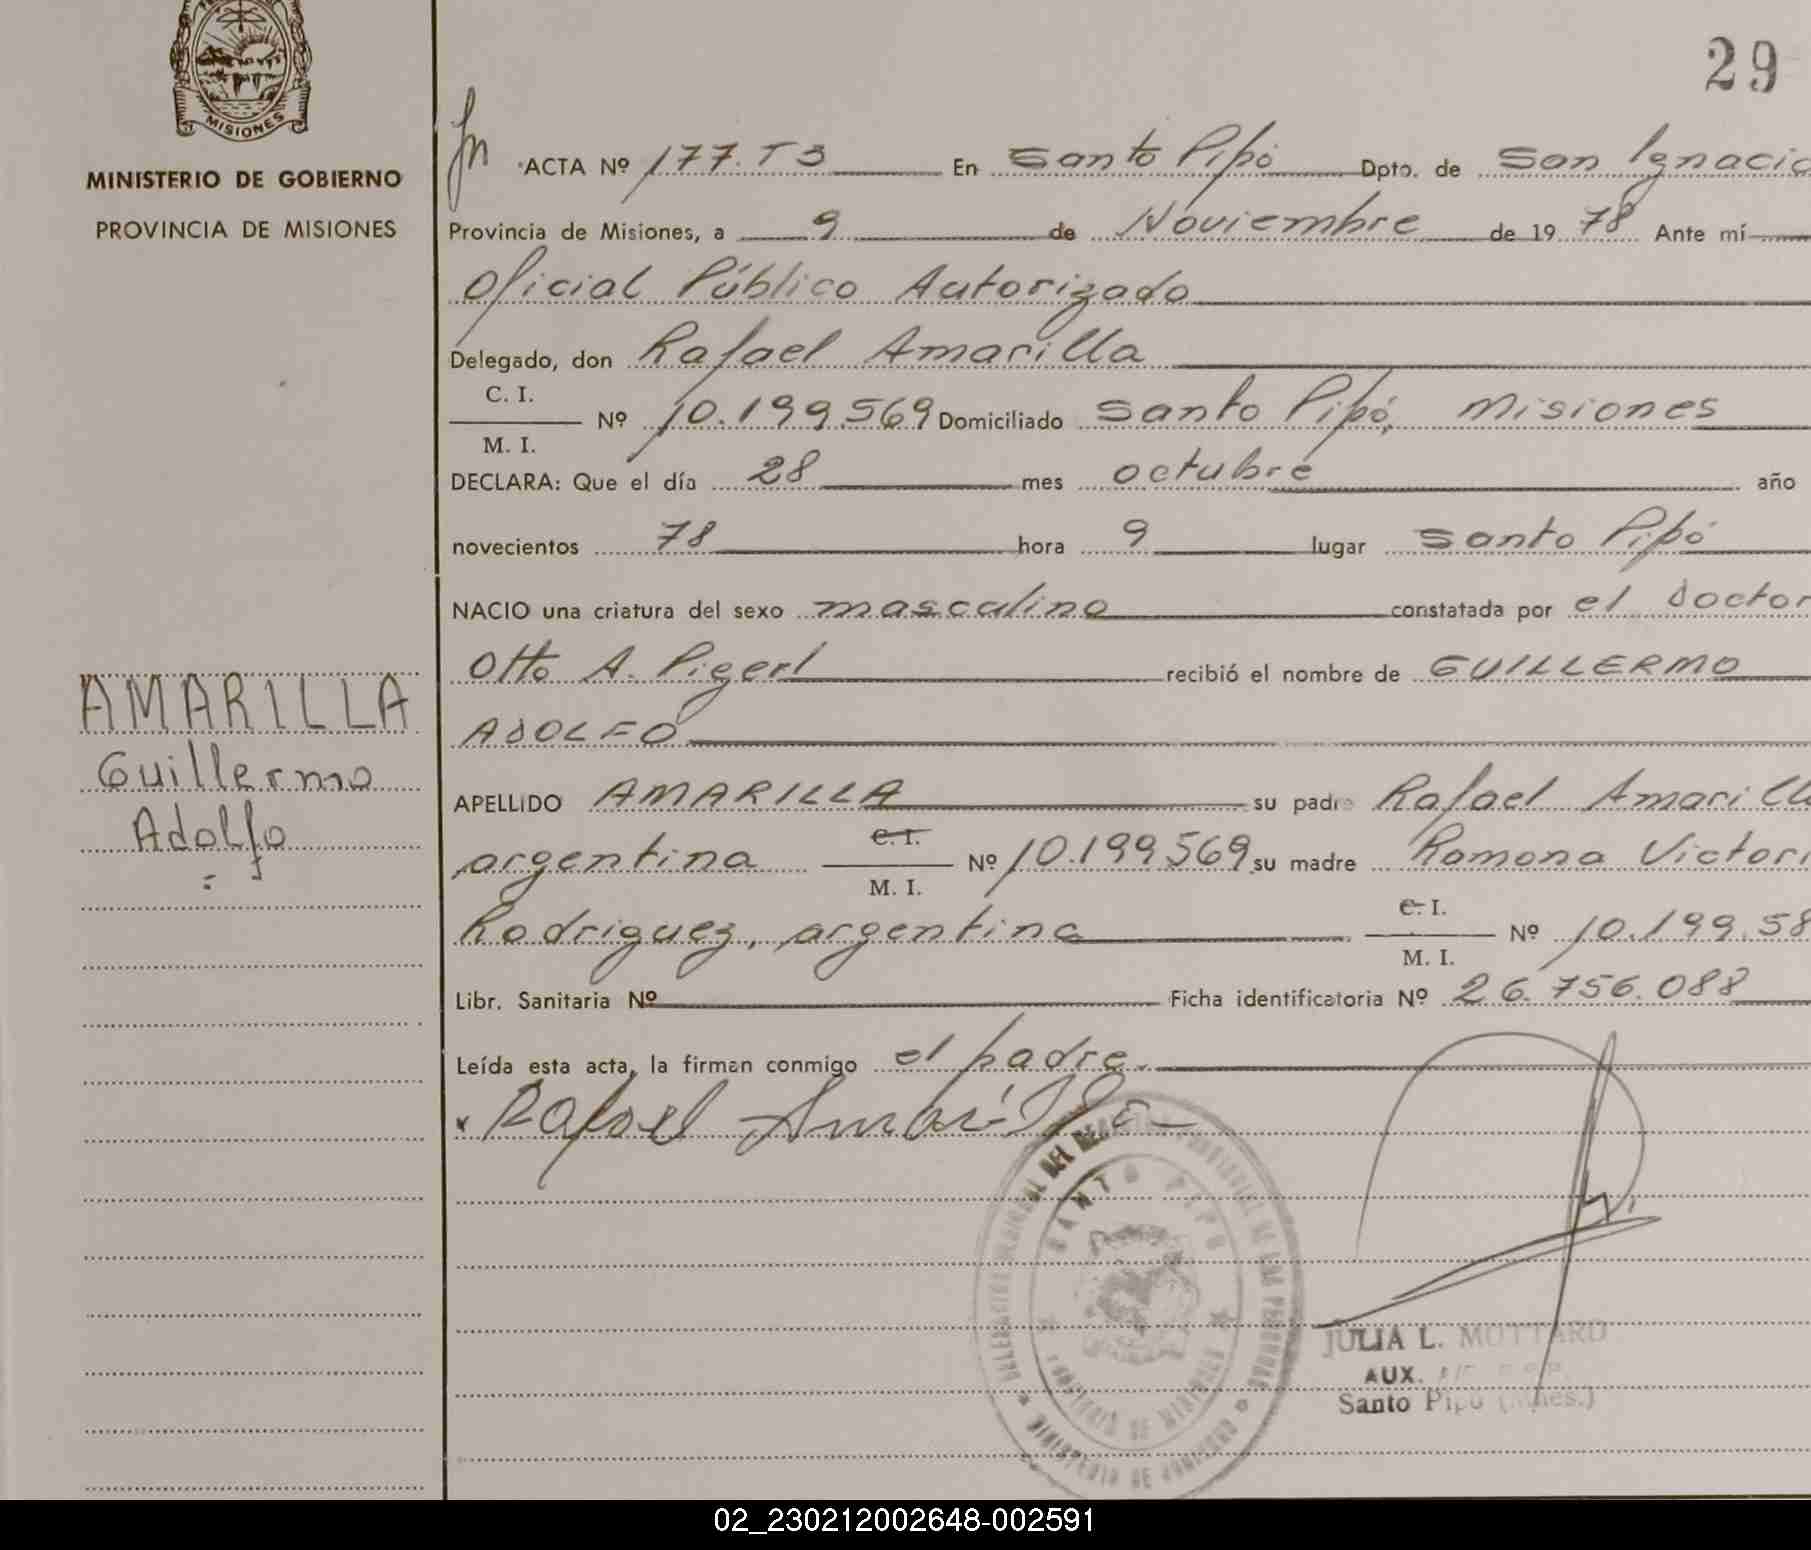 29
MISIONES
MINISTERIO DE GOBIERNO
PROVINCIA DE MISIONES
AMARILLA
Guillermo
Adolfo
ACTA Nº 177. T 3 En Santo Pipó Dpto. de San Ignacio
Provincia de Misiones, a 9 de Noviembre de 19 78 Ante mí
Oficial Público Autorizado
Delegado, don Rafael Amarilla
C. I.
M. I. Nº 10.199.569 Domiciliado Santo Pipó, Misiones
DECLARA: Que el día 28 mes octubre año
novecientos 78 hora 9 lugar Santo Pipó
NACIO una criatura del sexo masculino constatada por el Doctor
Otto A. Pigerl recibió el nombre de GUILLERMO
ADOLFO
APELLIDO AMARILLA su padre Rafael Amarill
argentina C. I.
M. I. Nº 10.199.569 su madre Ramona Victori
Rodriguez, argentina C. I.
M. I. Nº 10.199.58
Libr. Sanitaria Nº Ficha identificatoria Nº 26.756.088
Leída esta acta, la firman conmigo el padre.
Rafael Amarilla
SANTO PIPO
PROVINCIA DE MISIONES
MINISTERIO DE GOBIERNO
JULIA L. MOTTARD
AUX.
Santo Pipó (Mnes.)
02_230212002648-002591